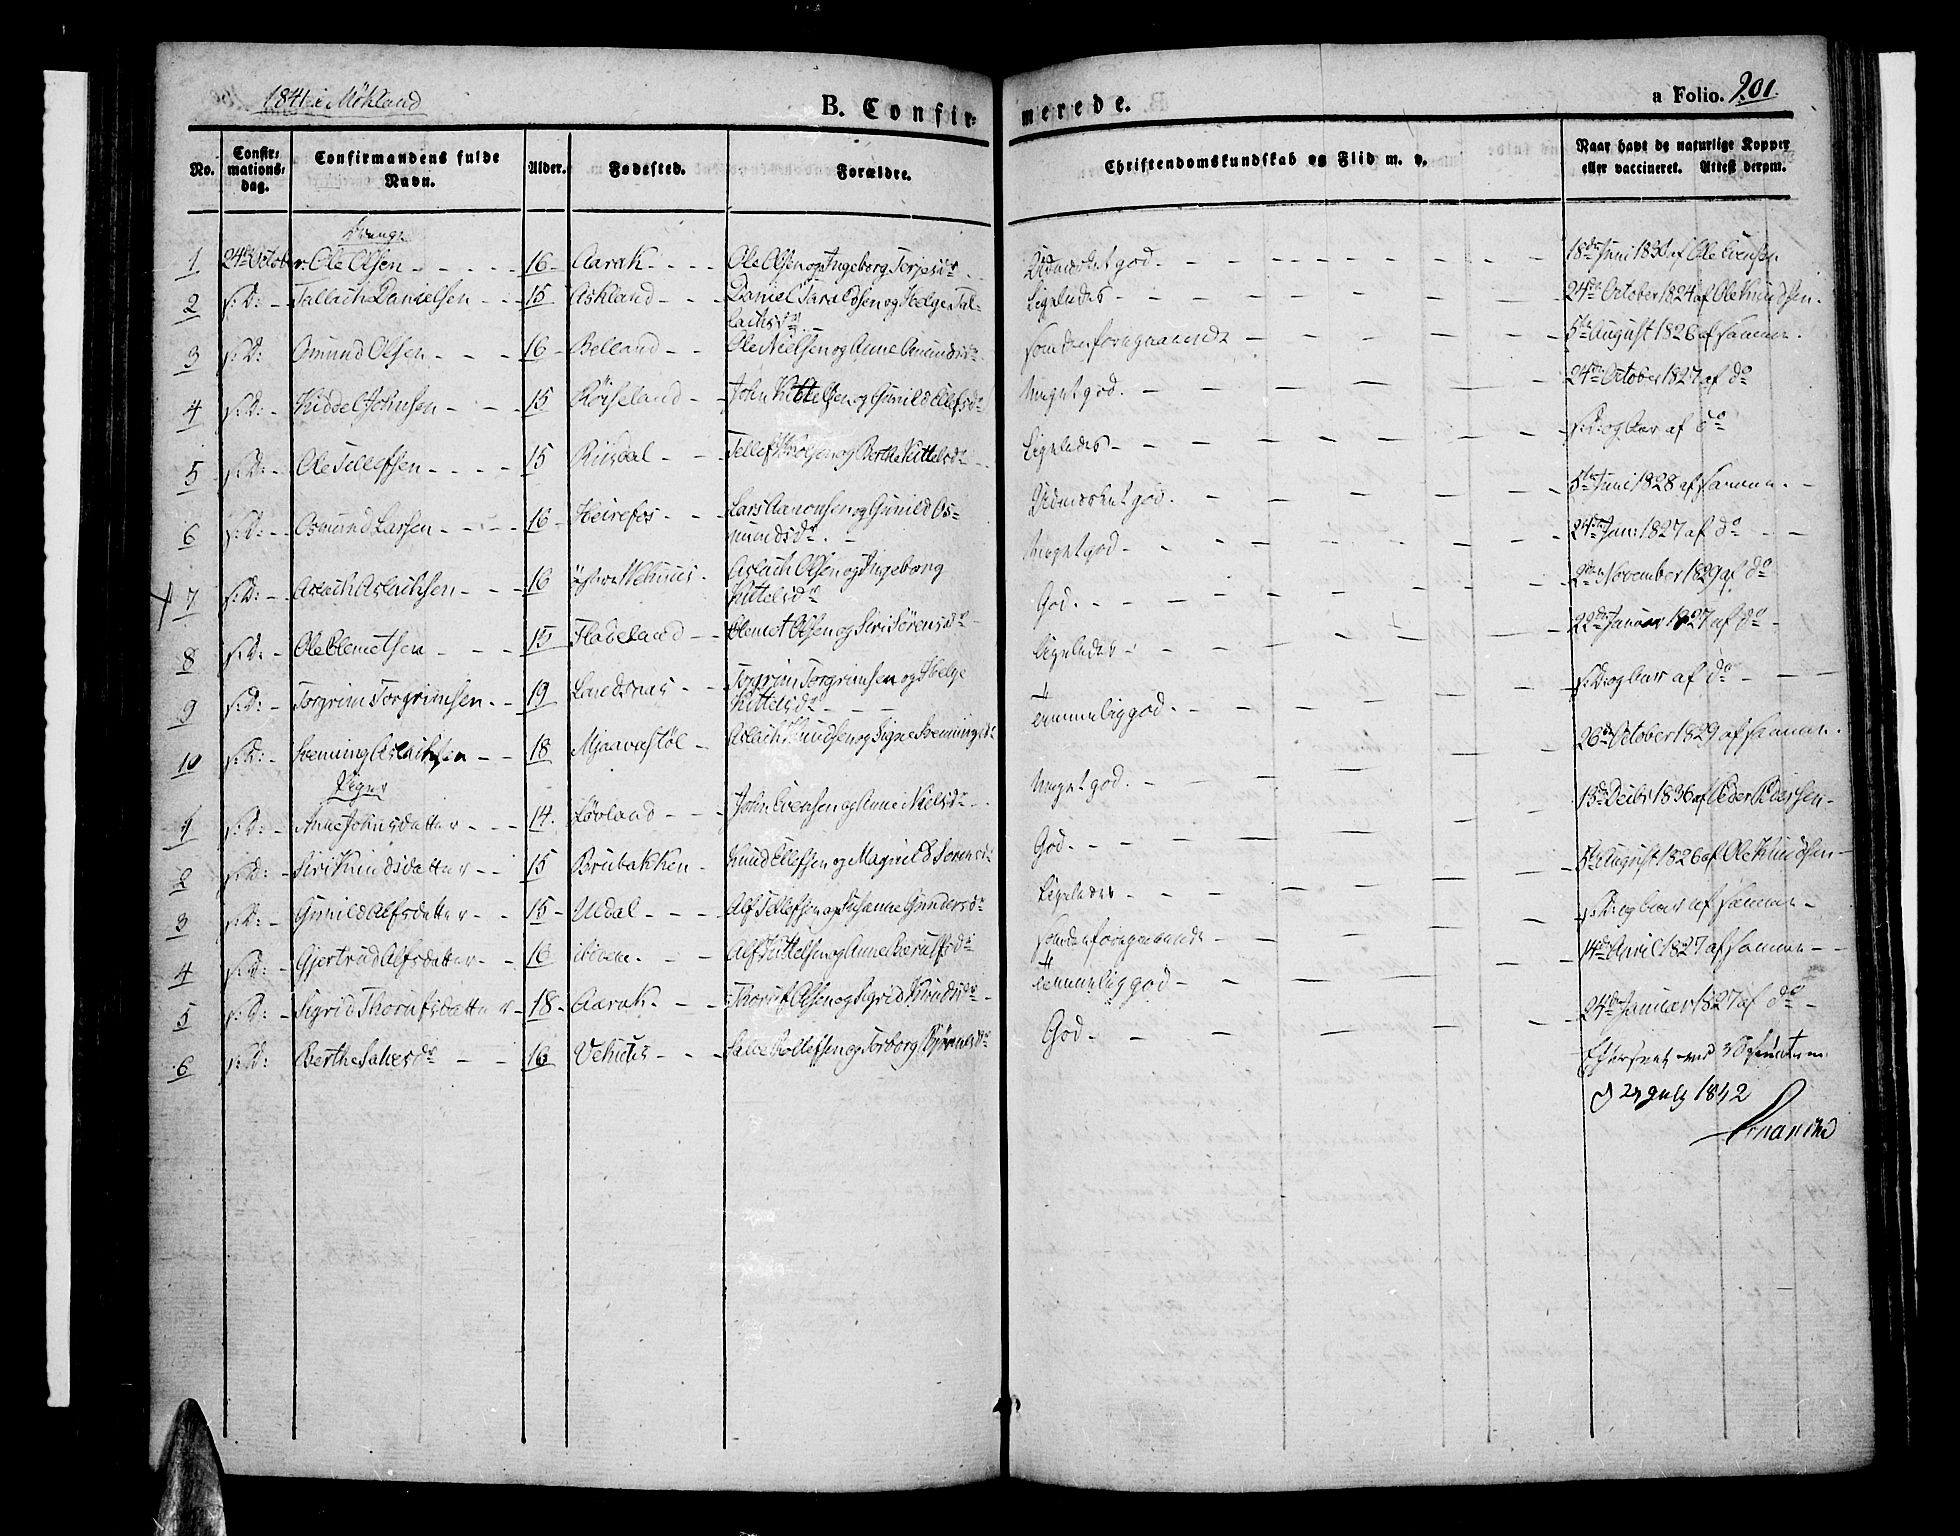 1841 i Mökland
B. Confirmerede.
a Folio. 201.
No. Confirmationsdag. Confirmandens fulde Navn. Alder. Fødested. Forældre. Christendomskundskab og Flid m. v. Naar havt de naturlige Kopper eller vaccineret. Attest derom.
Drenge
1 24de October. Ole Olsen 16 Aarak Ole Olsen og Ingeborg Terjesdr. Udmærket god. 18de Juni 1830 af Ole Evensen
2 s: D: Tallach Danielsen 15 Askland Daniel Taraldsen og Helge Tallachsdr. Ligeledes 24de October 1824 af Ole Knudsen.
3 s: D: Osmund Olsen 16 Belland Ole Nielsen og Anne Osmundsdr. som den foregaaende 5te August 1826 af samme.
4 s: D: Kiddel Johnsen 15 Röiseland John Kittelsen og Gunild Ellefsdr. Meget god. 24de October 1827 af do
5 s: D: Ole Tellefsen 15 Riisdal Tellef Knolsen og Berthe Kittelsdr. Ligeledes s: D: og Aar af do
6 s: D: Osmund Larsen 16 Heirefos Lars Aanonsen og Gunild Osmundsdr. Udmærket god. 5te Juni 1828 af samme.
7 s: D: Aslach Aslachsen 16 Vehuus Aslach Olsen og Ingeborg Kittelsdr. Meget god 24de Juni 1827 af do
8 s: D: Ole Clemetsen 15 Fladeland Clemet Olsen og Siri Sörensdr. God. 2den November 1829 af do
9 s: D: Torgrim Torgrimsen 19 Landsnæs Torgrim Torgrimsen og Helge Kittelsdr. Ligeledes 22de Januar 1827 af do
10 s: D: Svenning Aslachsen 18 Mjaavastöl Aslach Knudsen og Signe Svenningsdr. temmelig god. s: D: og Aar af do
Piger
1 s: D: Anne Johnsdatter 14. Lövland John Evensen og Anne Nielsdr. Meget god. 26de October 1829 af samme.
2 s: D: Siri Knudsdatter 15 Brubakken Knud Ellefsen og Magnild Sørensdr. God. 13de Decbr 1836 af Peder Pedersen
3 s: D: Gunild Alfsdatter 15 Uldal Alf Tellefsen og Susanne Gundersdr. Ligeledes 5te August 1826 af Ole Knudsen
4 s: D: Gjertrud Alfsdatter 16 Alf Kittelsen og Anne som den foregaaende s: D: og Aar af samme
5 s: D: Sigrid Thorufsdatter 18 Aarak Thoruf Olsen og Sigrid Knudsdr. temmelig god 14de April 1827 af samme
6 s: D: Berthe Salvesdr. 16 Vehuus Salve Rollefsen og Torborg Bjørnsdr. God 24de Januar 1827 af do
Efterseet ved Visitation
d 29 July 1842